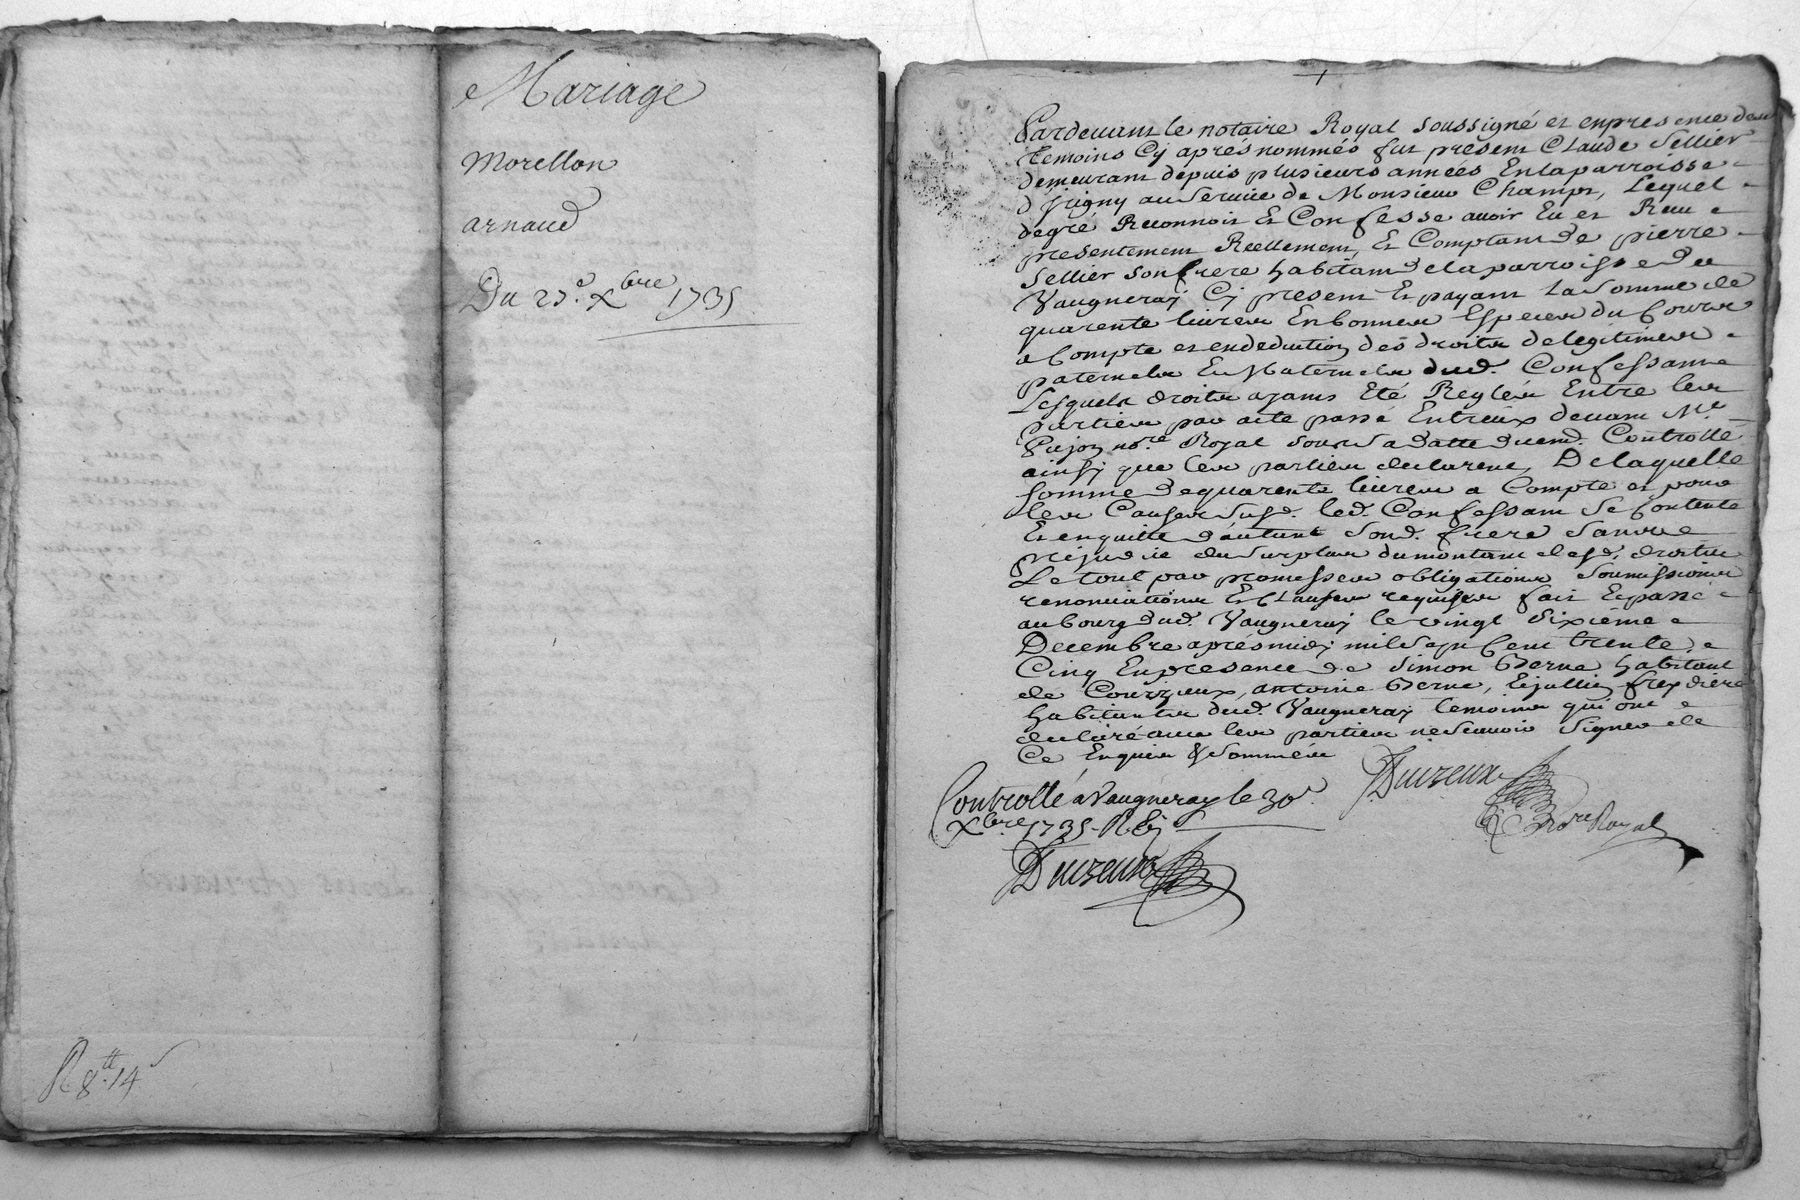 Mariage
Morellon
arnaud
Du 27e. Xbre 1735
R 8tt. 14s
Pardevant le notaire Royal soussigné et enpresence des
Temoins Cy aprés nommés fut présent Claude Sellier
demeurant depuis plusieurs années Enlaparroisse
d'jrigny auservice de Monsieur Champs, Lequel
degré Reconnoit Et Confesse avoir Eu et Receu
presentement Reellement, Et Comptant de pierre
Sellier son frere habitant delaparroisse de
Vaugneray Cy present Et payant La somme de
quarente livres Enbonnes Especes du Cours
a Compte et endeduction des droits de legitimes
paternels Et Maternels dud. Confessant
Lesquels droits ayant Eté Reglés Entre les
parties par acte passé Entreux devant Me
nore Royal sous sa datte duemt. Controllé
ainsy que les parties declarent, De laquelle
somme de quarente livres a Compte et pour
les Causes susd. led. Confessant se Contente
Et enquitte d'autant sond. frere sans
prejudice du surplus dumontant desd. droits
Le tout par promesses obligations soumissions
renonciations Et Clauses requises fait Et passé
au bourg dud. Vaugneray le vingt sixiéme
Decembre aprésmidy mil sept Cent trente
Cinq Enpresence de Simon Berne habitant
de Courzieux, antoine Berne, Et jullien
habitants dud. Vaugneray temoins qui ont
declaré avec les parties nescavoir signer de
Ce Enquis & sommés
Controllé a Vaugneray le 30e.
Xbre 1735
nore Royal